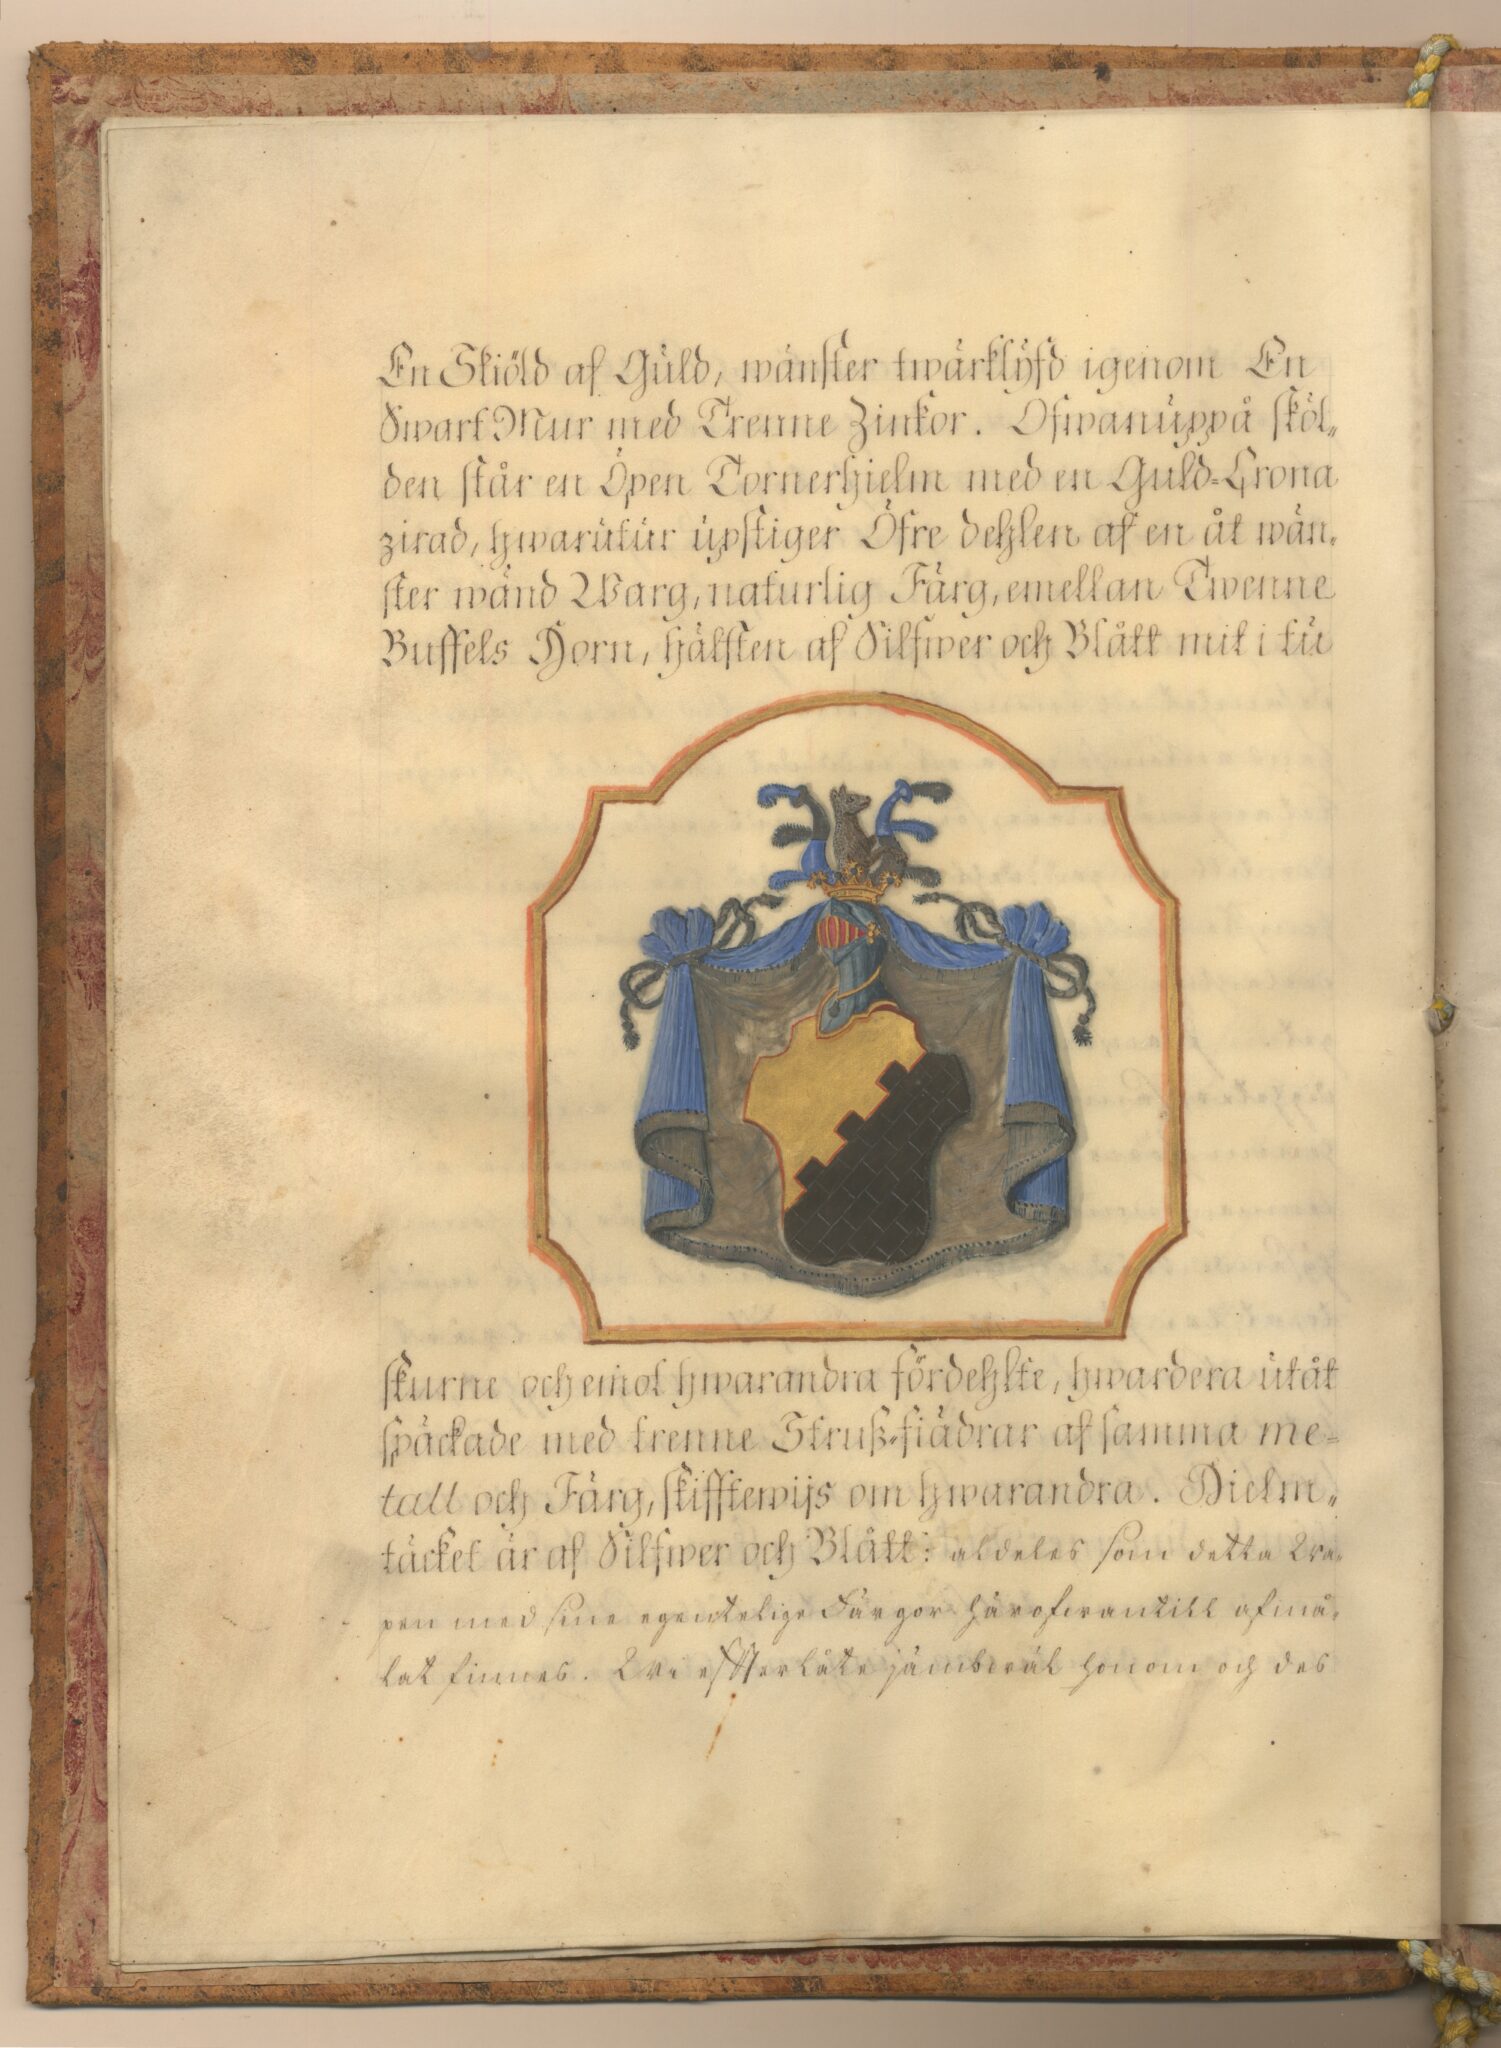 En Skiöld af Gŭld, wänster twärklÿfd igenom En
Swart Mur med Trenne Zinkor. Ofwanŭppå sköl„
den står en Öpen Tornerhielm med en Guld=Crona
zirad, hwarŭtŭr ŭpstiger Öfre dehlen af en åt wän„
ster wänd Warg, naturlig Färg, emellan Twenne
Buffels Horn, hälften af Silfwer och Blått mit i tŭ
skurne och emot hwarandra fördehlte, hwardera ŭtåt
späckade med trenne Struß=fiädrar af samma me=
tall och Färg, skifftewijs om hwarandra. Hielm„
täcket är af Silfwer och Blått: aldeles som detta Wa„
pen med sine egentelige Färgor härofwantill afmå„
lat finnes. Wi effterlåte jämbwäl honom och des